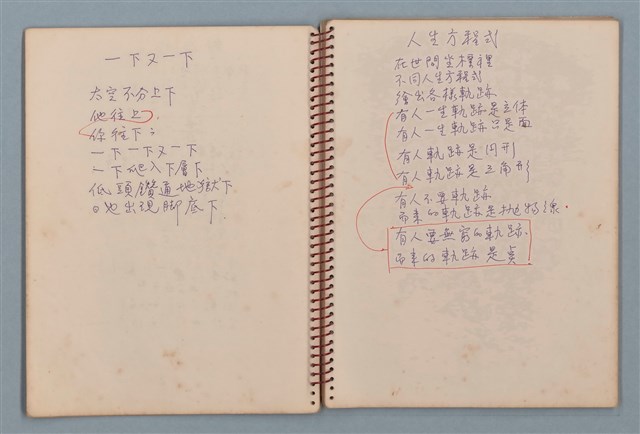 一下又一下
太空不分上下
他往上,
你往下;
一下一下又一下
一下爬入下層下
低頭鑽通地獄下
日也出現腳底下
人生方程式
在世間坐標裡
不同人生方程式
繪出各樣軌跡
有人一生軌跡是立体
有人一生軌跡只是面
有人軌跡是円形
有人軌跡是三角形
有人不要軌跡
而來的軌跡是拋物線
有人要無窮的軌跡
而來的軌跡是